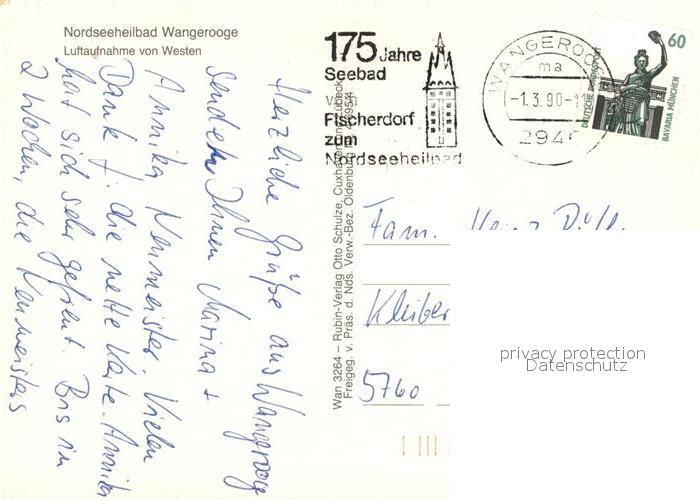 Nordseeheilbad Wangerooge
Luftaufnahme von Westen
Herzliche Grüße aus Wangerooge
senden Ihnen Marina +
Annika Neumeister. Vielen
Dank f. die nette Karte. Annika
hat sich sehr gefreut. Bis in
2 Wochen, die Neumeisters
175 Jahre
Seebad
Vom
Fischerdorf
zum
Nordseeheilbad
WANGEROOGE
ma
-1.3.90-11
294
60
DEUTSCHE BUNDESPOST
BAVARIA MÜNCHEN
Wan 3264 – Rubin-Verlag Otto Schulze, Cuxhaven
Freigeg. v. Präs. d. Nds. Verw.-Bez. Oldenburg
Fam.
5760
privacy protection
Datenschutz